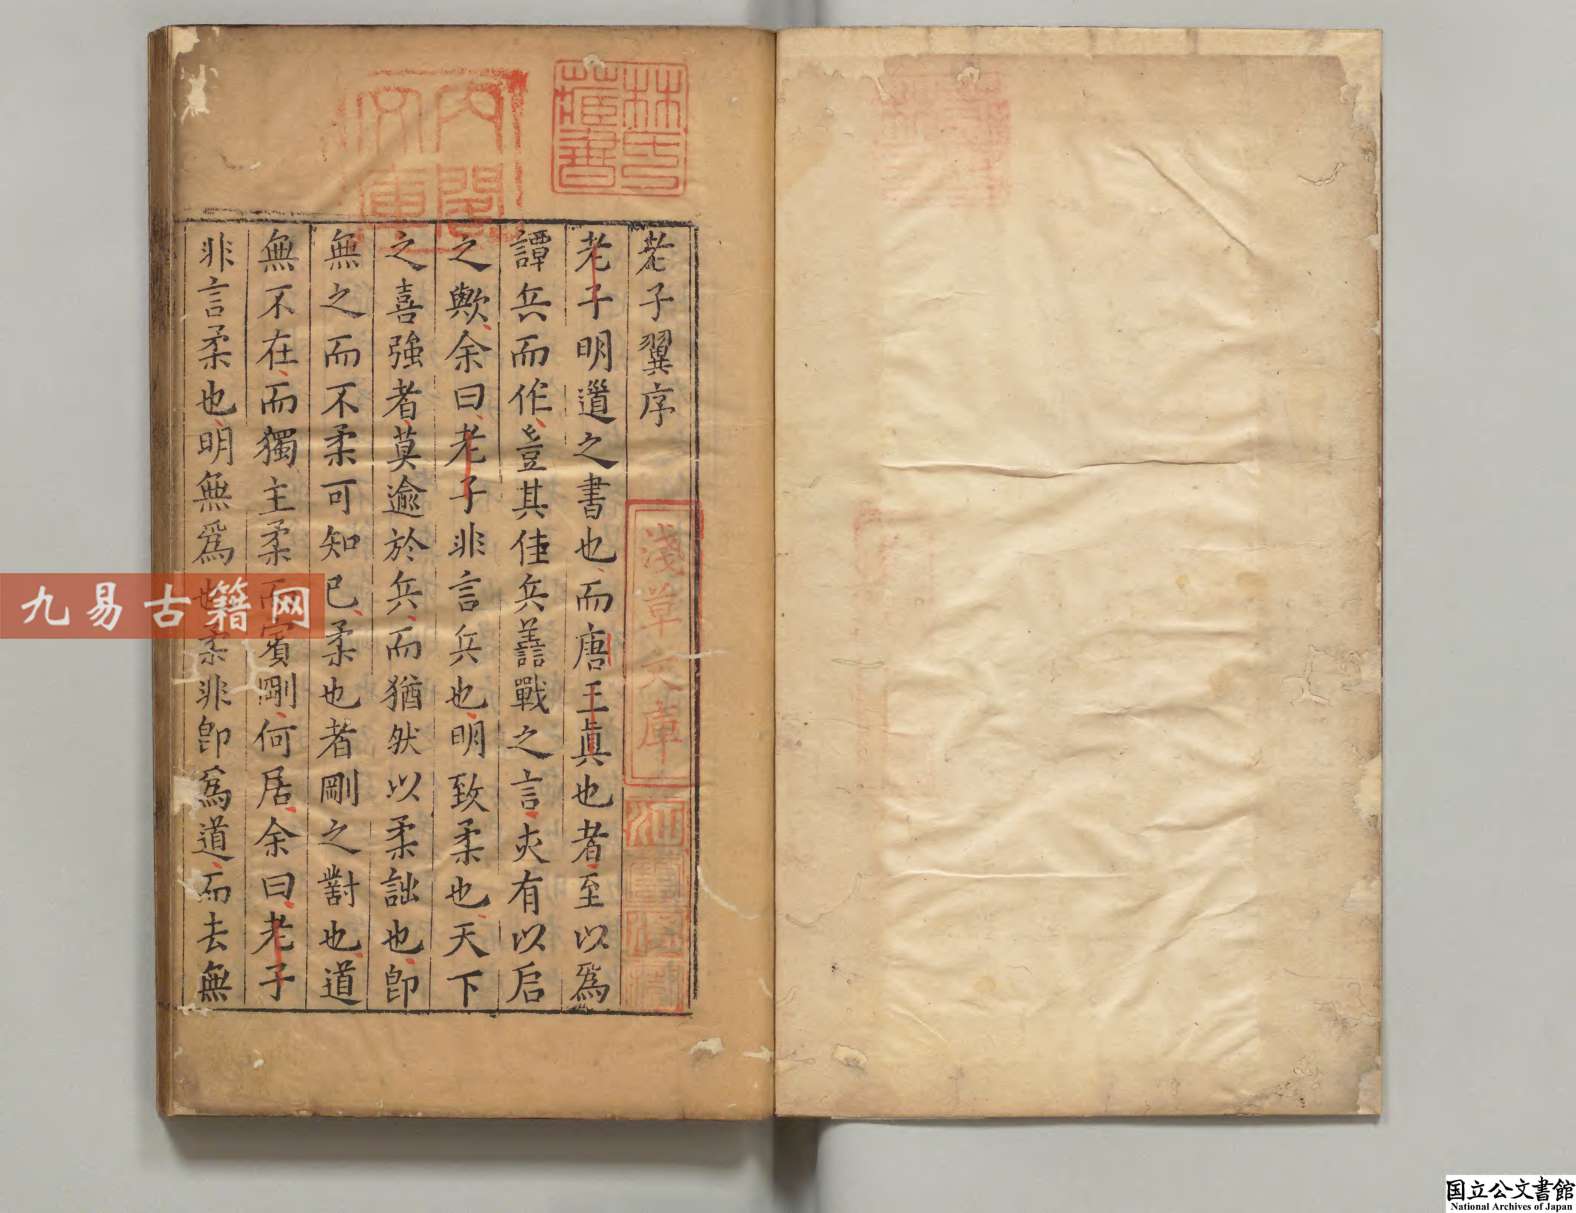 老子翼序
老子明道之書也而唐王眞也者至以爲
譚兵而作豈其佳兵譱戰之言夾有以启
之歟余曰老子非言兵也明致柔也天下
之喜強者莫逾於兵而猶然以柔詘也卽
無之而不柔可知已柔也者剛之對也道
無不在而獨主柔而賓剛何居余曰老子
非言柔也明無爲也柔非卽爲道而去無
林氏藏書
內閣文庫
淺草文庫
九易古籍网
国立公文書館
National Archives of Japan